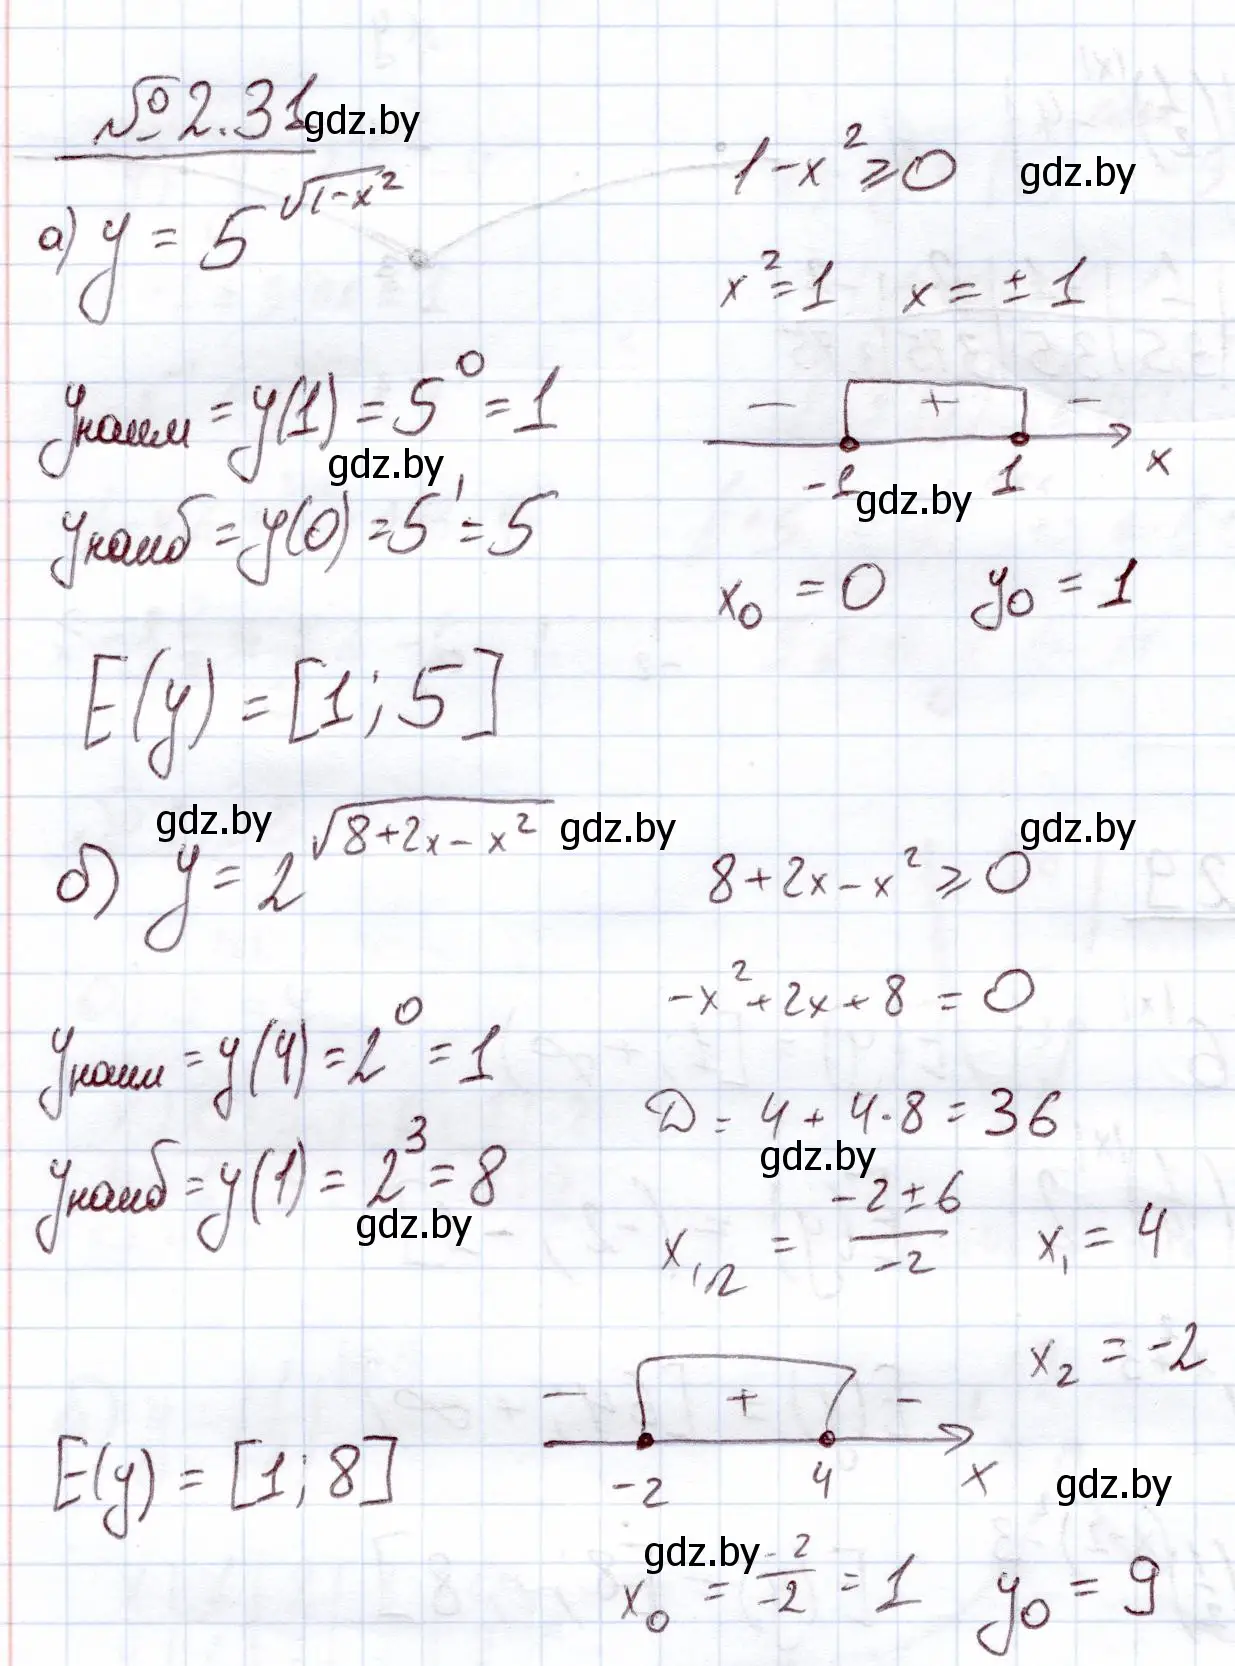 № 2.31 gdz.by
а) y = 5^√(1-x²)
1-x² ⩾ 0 gdz.by
x² = 1 x = ± 1
yнаим = y(1) = 5⁰ = 1
gdz.by
— + —
-1 1 x
gdz.by
yнаиб = y(0) = 5¹ = 5
x₀ = 0 y₀ = 1
E(y) = [1; 5]
gdz.by gdz.by gdz.by
б) y = 2^√(8+2x-x²)
8+2x-x² ⩾ 0
-x²+2x+8 = 0
yнаим = y(4) = 2⁰ = 1
D = 4 + 4·8 = 36
gdz.by
yнаиб = y(1) = 2³ = 8
gdz.by
x₁,₂ = (-2±6)/-2 x₁ = 4
x₂ = -2
— + —
-2 4 x
E(y) = [1; 8]
gdz.by
gdz.by
x₀ = -2/-2 = 1 y₀ = 9